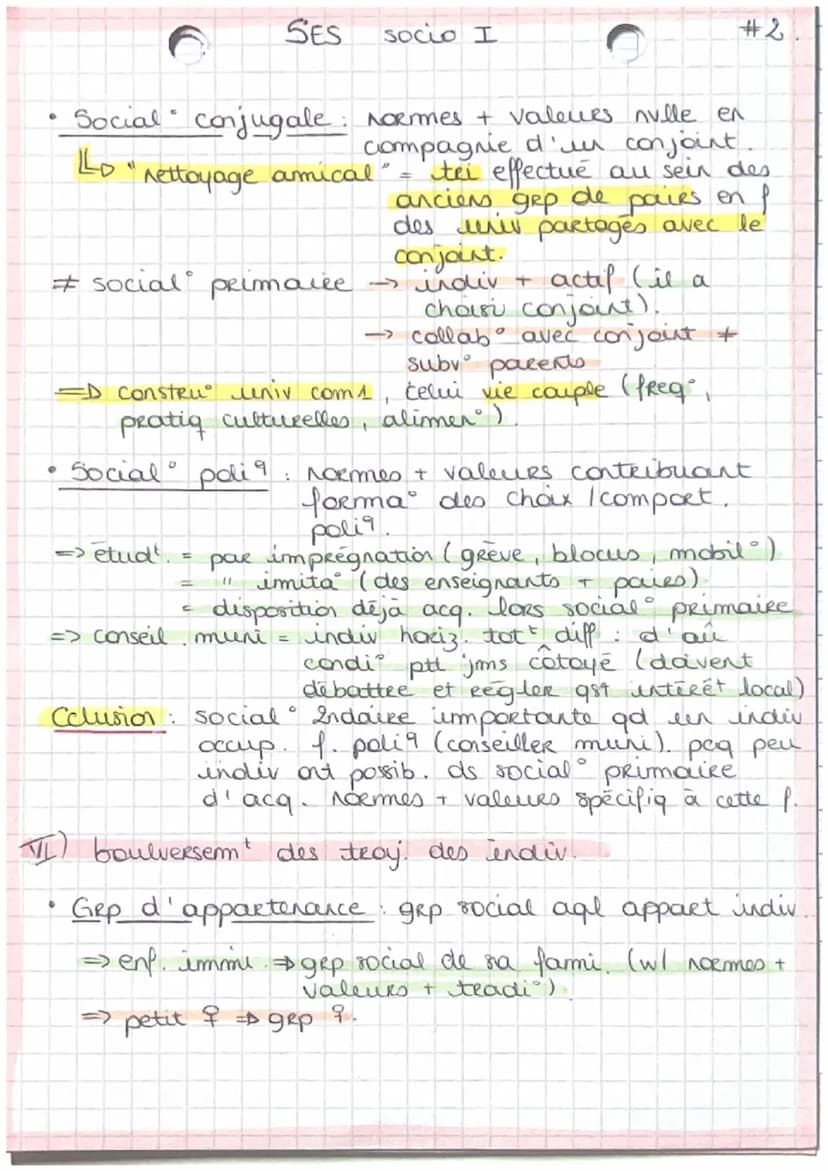 SES socio I #2.
• Social° conjugale : normes + valeurs nvlle en
compagnie d'un conjoint.
↳ "nettoyage amical" = tri effectué au sein des
anciens grp de pairs en f
des univ partagés avec le
conjoint.
≠ social° primaire → indiv + actif (il a
choisi conjoint).
→ collab° avec conjoint ≠
subv° parents
⇒ constru° univ com1, celui vie couple (freq°,
pratiq culturelles, alimen°).
• Social° poliq : normes + valeurs contribuant
forma° des choix / comport.
poliq.
=> étudt. = par imprégnation (grève, blocus, mobil°)
= " imita° (des enseignants + pairs)
= disposition déjà acq. lors social° primaire
=> conseil. muni = indiv horiz. tott diff : d'où
condi° ptt jms côtoyé (doivent
débattre et régler qst intérêt local)
Cclusion : social° 2ndaire importante qd un indiv
occup. f. poliq (conseiller muni). pcq peu
indiv ont possib. ds social° primaire
d'acq. normes + valeurs spécifiq à cette f.
VI) boulversemt des traj. des indiv.
• Grp d'appartenance : grp social aql appart indiv.
=> enf. immi. ⇒ grp social de sa fami. (w/ normes +
valeurs + tradi°)
=> petit ♀ ⇒ grp ♀.